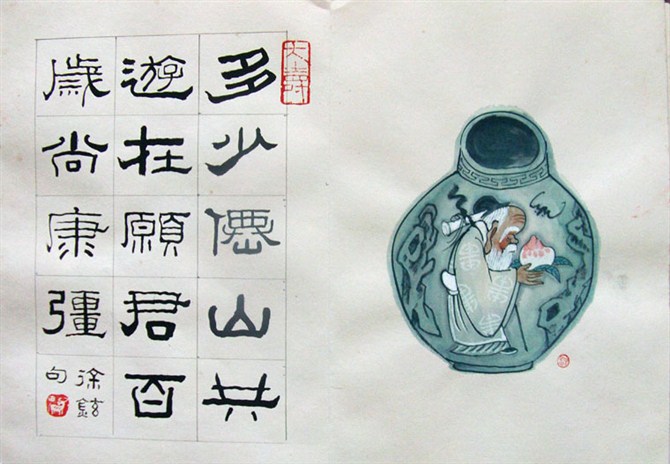 大壽
多少僊山共
遊在願君百
歲尚康彊
徐鉉
句